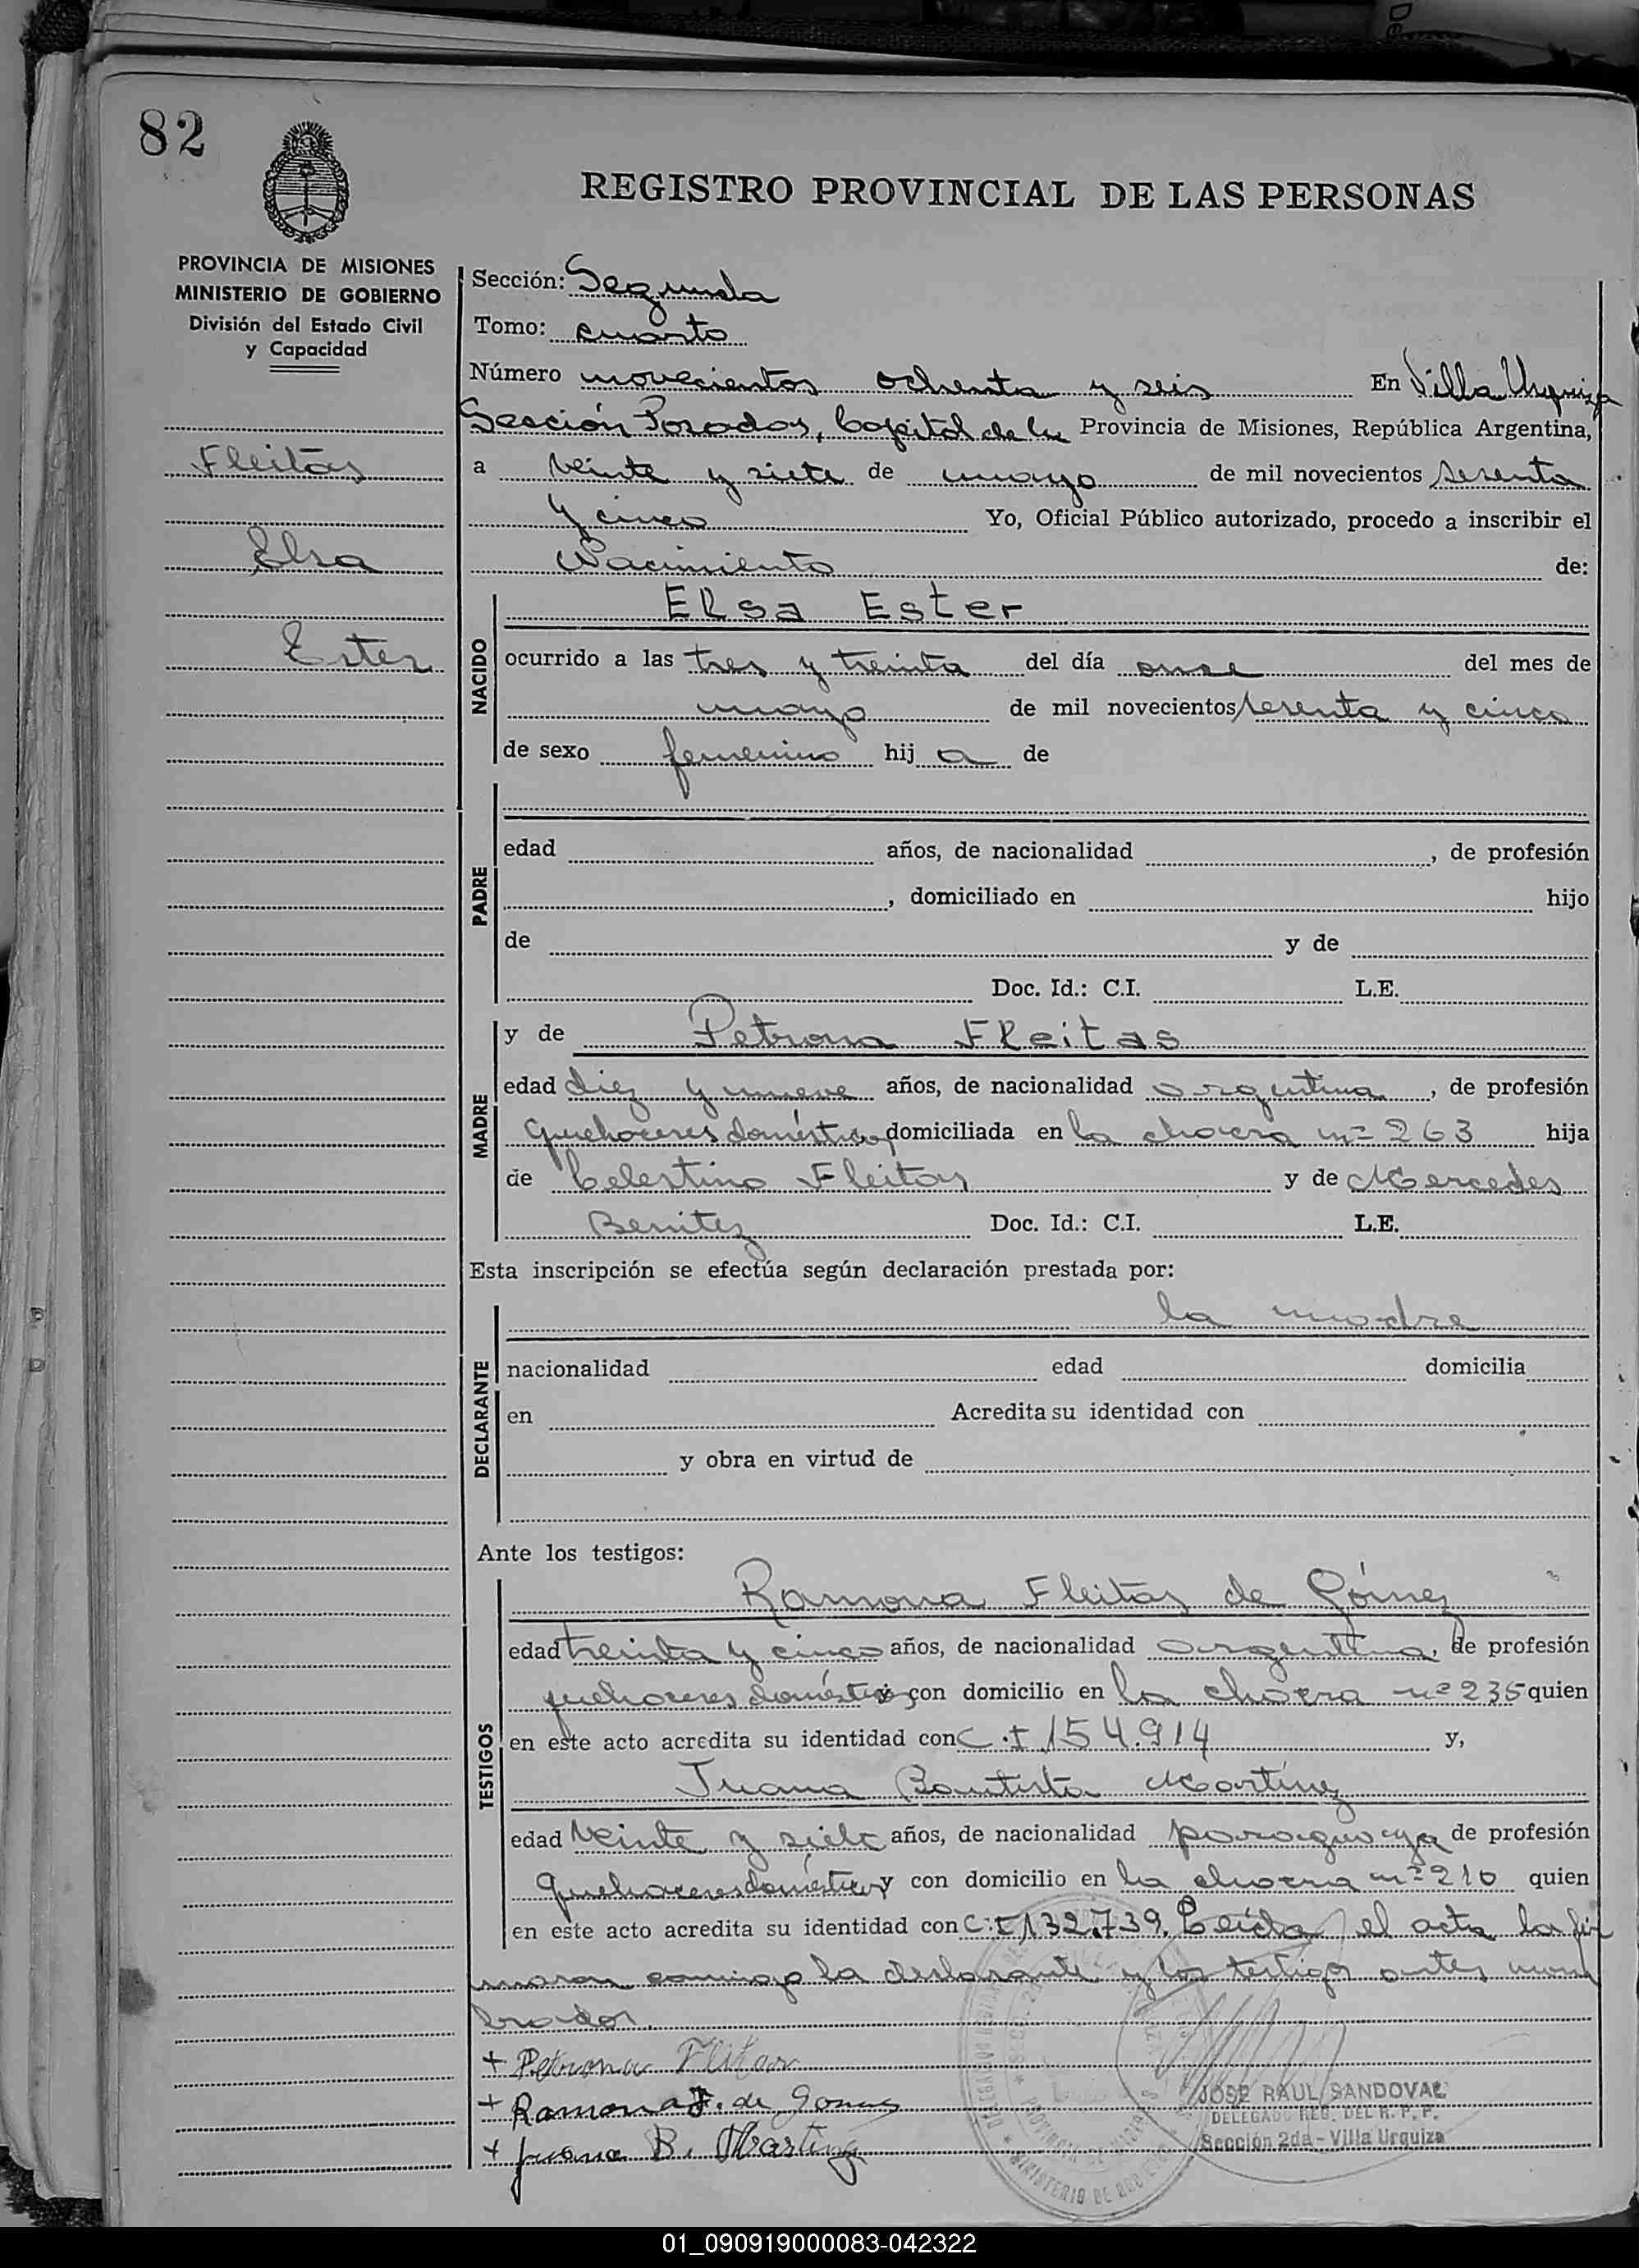 82
REGISTRO PROVINCIAL DE LAS PERSONAS
PROVINCIA DE MISIONES
MINISTERIO DE GOBIERNO
División del Estado Civil
y Capacidad
Fleitas
Elsa
Ester
Sección: Segunda
Tomo: cuarto
Número novecientos ochenta y seis En Villa Urquiza
Sección Posadas, Capital de la Provincia de Misiones, República Argentina,
a veinte y siete de mayo de mil novecientos sesenta
y cinco Yo, Oficial Público autorizado, procedo a inscribir el
Nacimiento de:
NACIDO
Elsa Ester
ocurrido a las tres y treinta del día once del mes de
mayo de mil novecientos sesenta y cinco
de sexo femenino hij a de
PADRE
edad años, de nacionalidad , de profesión
, domiciliado en hijo
de y de
Doc. Id.: C.I. L.E.
MADRE
y de Petrona Fleitas
edad diez y nueve años, de nacionalidad argentina, de profesión
quehaceres domésticos domiciliada en la chacra nº 263 hija
de Celestino Fleitas y de Mercedes
Benitez Doc. Id.: C.I. L.E.
Esta inscripción se efectúa según declaración prestada por:
DECLARANTE
la madre
nacionalidad edad domicilia
en Acredita su identidad con
y obra en virtud de
Ante los testigos:
TESTIGOS
Ramona Fleitas de Gómez
edad treinta y cinco años, de nacionalidad argentina, de profesión
quehaceres domésticos con domicilio en la chacra nº 235 quien
en este acto acredita su identidad con C.I 154.914 y,
Juana Bautista Martínez
edad veinte y siete años, de nacionalidad paraguaya de profesión
quehaceres domésticos y con domicilio en la chacra nº 210 quien
en este acto acredita su identidad con C.I 132.739. Leída el acta la fir
maron conmigo la declarante y los testigos antes nom
brados.
+ Petrona Flitas
+ Ramona F. de Gomes
+ Juana B. Martinez
JOSE RAUL SANDOVAL
DELEGADO REG. DEL R. P. P.
Sección 2da - Villa Urquiza
PROVINCIA DE
MINISTERIO DE
01_090919000083-042322